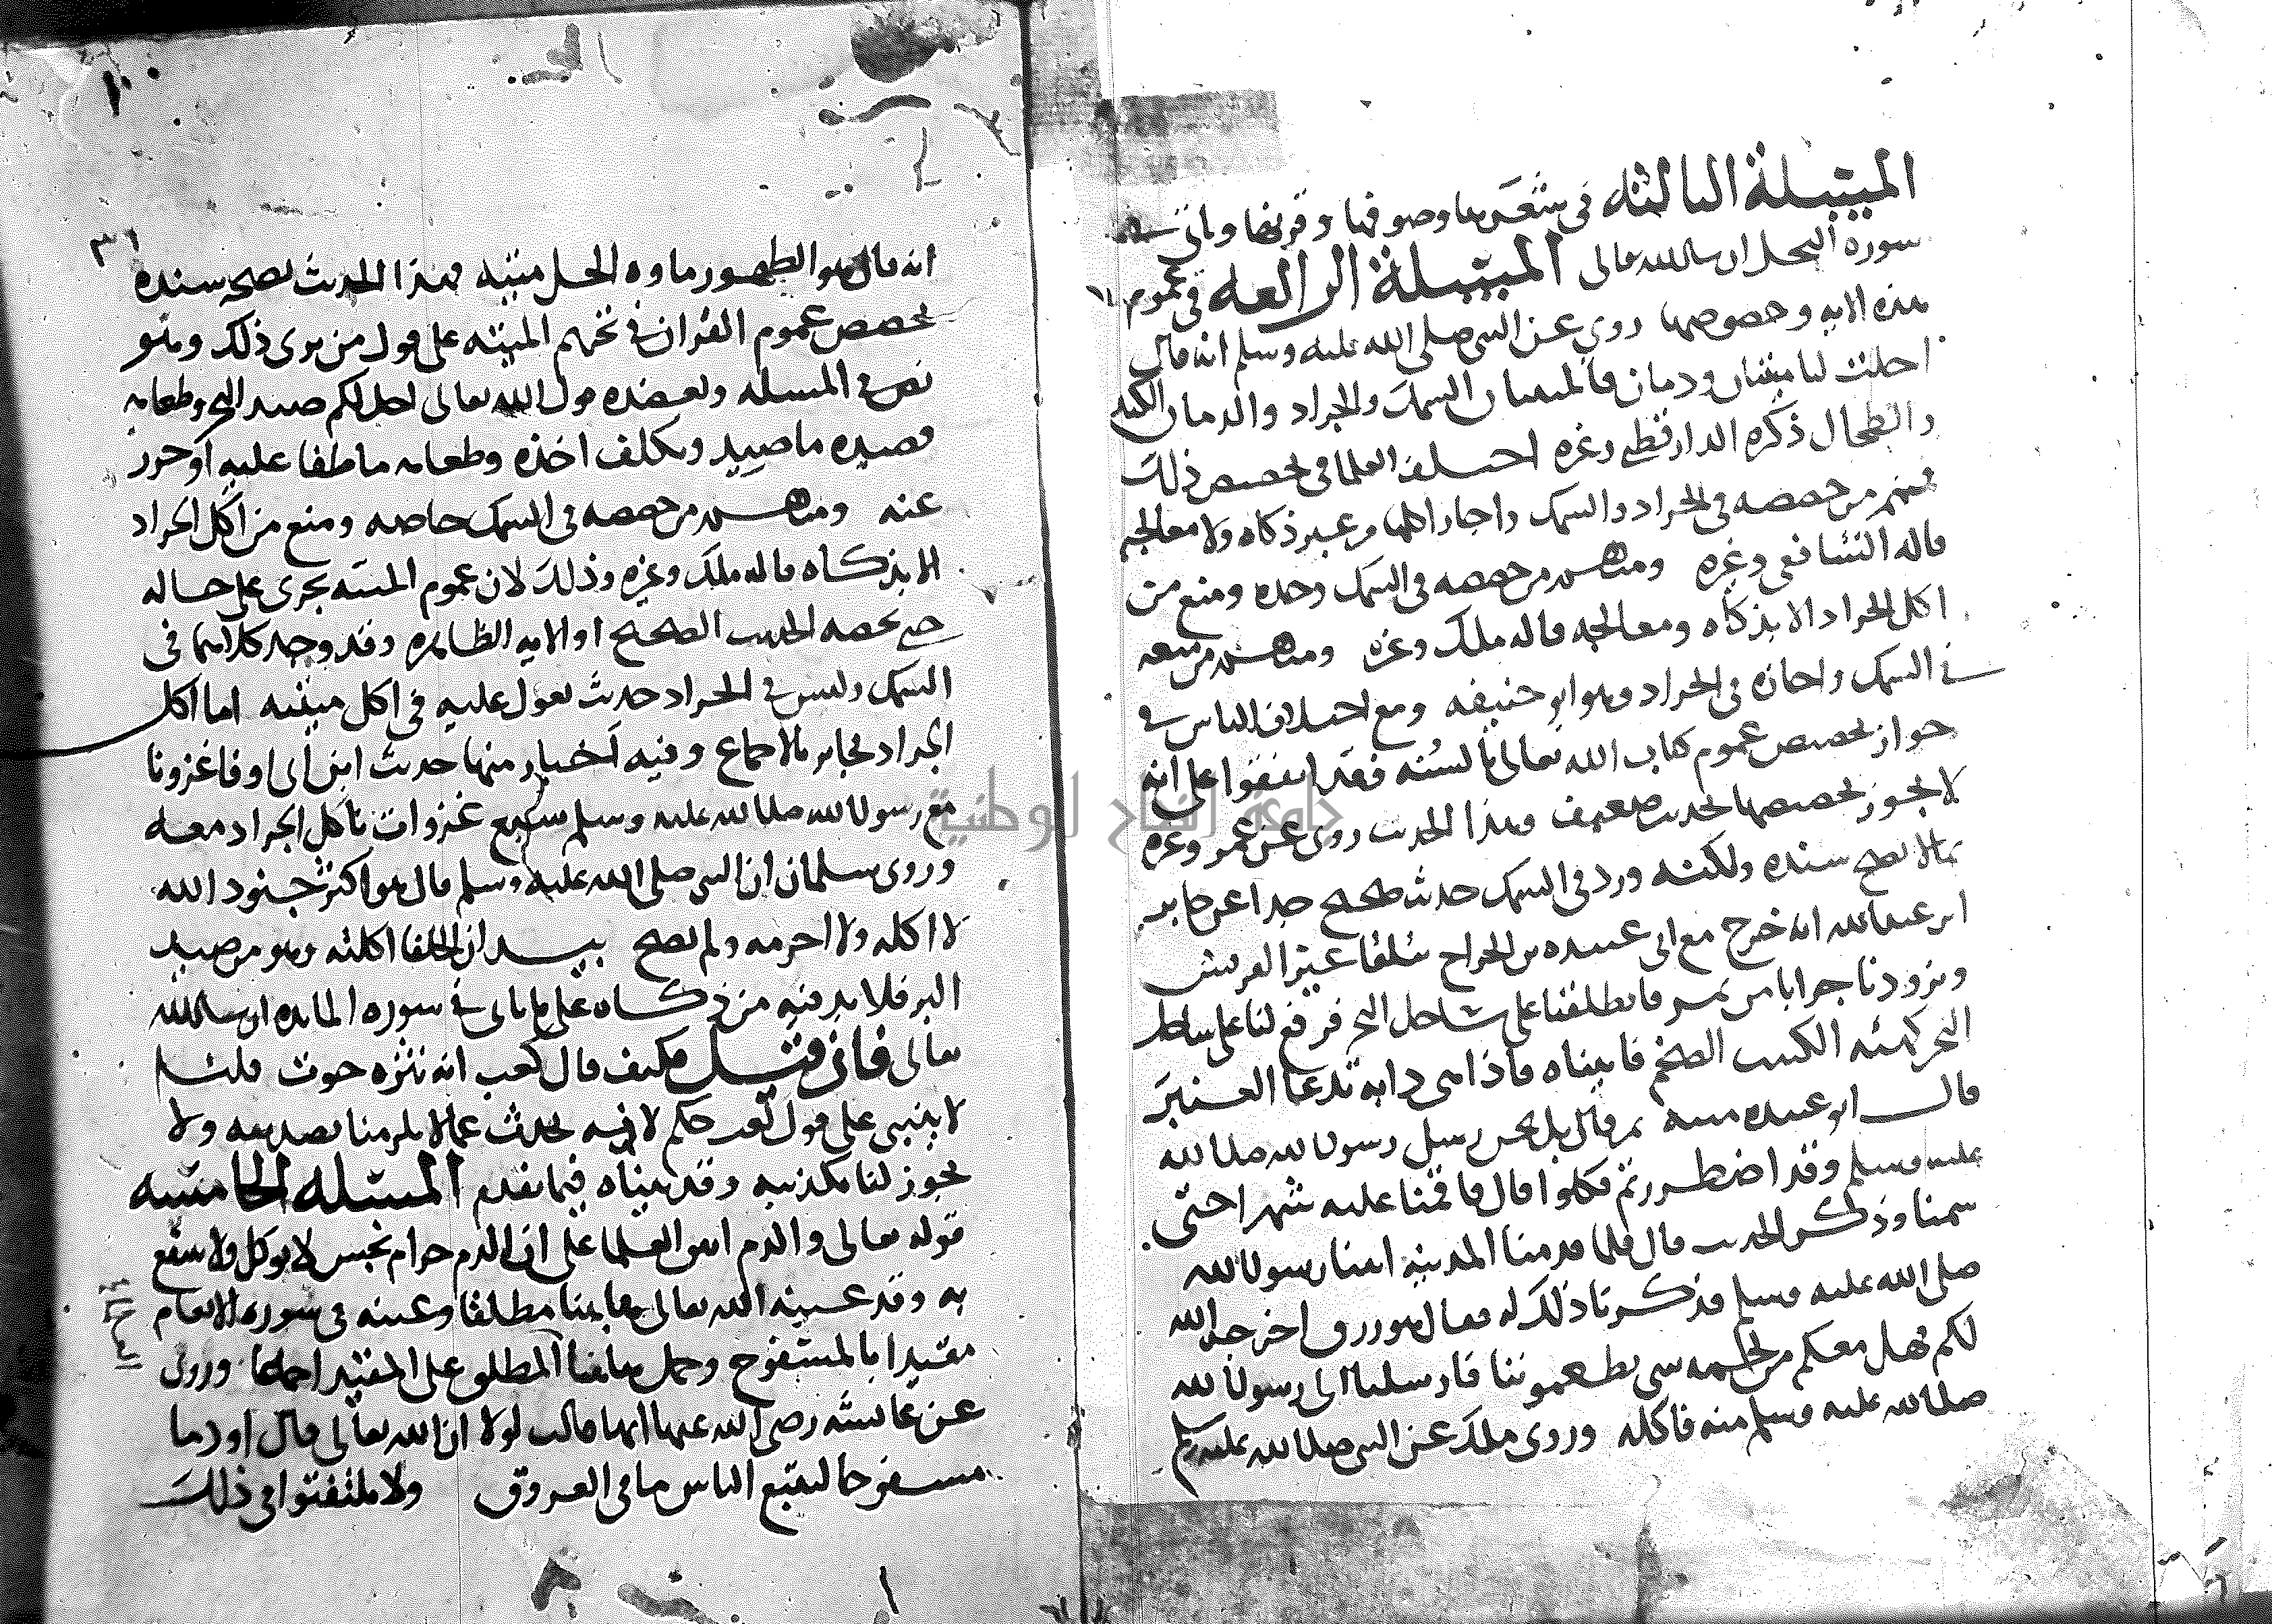 المسئلة الثالثة في شعرها وصوفها وقرنها وياتي في
سورة النحل ان شا الله تعالى المسئلة الرابعة في عموم
هذه الاية وخصوصها روي عن النبي صلى الله عليه وسلم انه قال
احلت لنا ميتتان ودمان فالميتتان السمك والجراد والدمان الكبد
والطحال ذكره الدارقطني وغيره اختلف العلما في تخصيص ذلك
فمنهم من خصصه في الجراد والسمك واجاز اكلهما من غير ذكاة ولا معالجة
قاله الشافعي وغيره ومنهم من خصصه في السمك وحده ومنع من
اكل الجراد الا بذكاة ومعالجة قاله ملك وغيره ومنهم من منعه
في السمك واجازه في الجراد وهو ابو حنيفة ومع اختلاف الناس في
جواز تخصيص عموم كتاب الله تعالى بالسنة فقد اتفقوا على انه
لا يجوز تخصيصها بحديث ضعيف وهذا الحديث روي عن عمر وغيره
مما لا يصح سنده ولكنه ورد في السمك حديث صحيح جدا عن جابر
ابن عبد الله انه خرج مع ابي عبيدة بن الجراح نتلقا عيرا لقريش
وتزودنا جرابا من تمر فانطلقنا على ساحل البحر فرفع لنا على ساحل
البحر كهيئة الكثيب الضخم فاتيناه فاذا هي دابة تدعا العنبر
قال ابو عبيدة ميتة ثم قال بل نحن رسل رسول الله صلى الله
عليه وسلم وقد اضطررتم فكلوا قال فاقمنا عليه شهرا حتى
سمنا وذكر الحديث قال فلما قدمنا المدينة اتينا رسول الله
صلى الله عليه وسلم فذكرنا ذلك له فقال هو رزق اخرجه الله
لكم فهل معكم من لحمه شي تطعموننا فارسلنا الى رسول الله
صلى الله عليه وسلم منه فاكله وروى ملك عن النبي صلى الله عليه وسلم
٣١
انه قال هو الطهور ماوه الحل ميتته فهذا الحديث بصحة سنده
يخصص عموم القران في تحريم الميتة على قول من يرى ذلك وهو
نص في المسئلة ويعضده قول الله تعالى احل لكم صيد البحر وطعامه
فصيده ما صيد وتكلف اخذه وطعامه ما طفا عليه او جزر
عنه ومنهم من خصصه في السمك خاصة ومنع من اكل الجراد
الا بذكاة قاله ملك وغيره وذلك لان عموم الميتة يجري على حاله
حتى يخصه الحديث الصحيح او الاية الظاهرة وقد وجد كلاهما في
السمك وليس في الجراد حديث يعول عليه في اكل ميتته اما اكل
الجراد فجايز بالاجماع وفيه اخبار منها حديث ابن ابي اوفا غزونا
مع رسول الله صلى الله عليه وسلم سبع غزوات ناكل الجراد معه
وروى سلمان ان النبي صلى الله عليه وسلم قال هو اكثر جنود الله
لا اكله ولا احرمه ولم يصح بيد ان الخلفا اكلته وهو من صيد
البر فلا بد فيه من ذكاة على ما ياتي في سورة المايدة ان شا الله
تعالى فان قيل فكيف قال كعب انه نثرة حوت قلنا
لا ينبني على قول كعب حكم لانه يحدث عما لا يلزمنا تصديقه ولا
يجوز لنا تكذيبه وقد بيناه فيما تقدم المسئلة الخامسة
قوله تعالى والدم اتفق العلما على ان الدم حرام نجس لا يوكل ولا ينتفع
به وقد عينه الله تعالى هاهنا مطلقا وعينه في سورة الانعام
مقيدا بالمسفوح وحمل هاهنا المطلق على المقيد اجماعا وروي
عن عائشة رضي الله عنها انها قالت لولا ان الله تعالى قال او دما
مسفوحا لتتبع الناس ما في العروق ولا ملتفتوا في ذلك
جامعة النجاح الوطنية